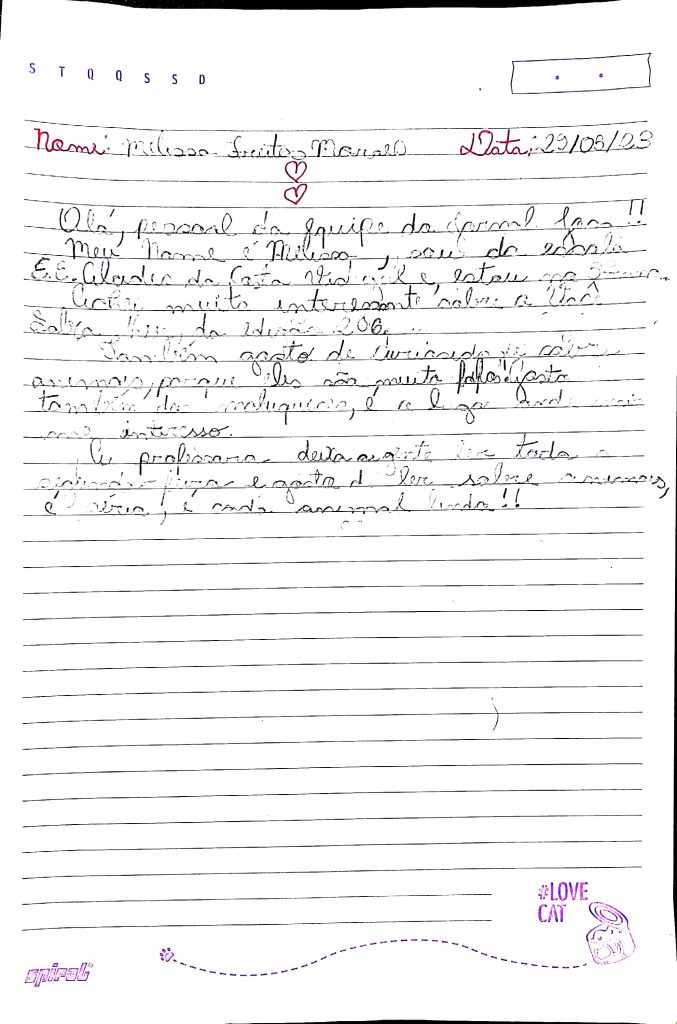 S T Q Q S S D
Nome: Melissa Freitas Data: 29/05/23
Olá, pessoal da equipe do jornal Joca!!
Meu Nome é Melissa, sou da escola
E.E. da Costa e, estou no
Achei muito interessante sobre a Você
Sabia da edição 206.
Também gosto de curiosidade sobre
animais, porque eles são muito fofos! gosto
também da maluquices, é o lugar onde mais
me interesso.
A professora deixa a gente ler toda a
segunda-feira e gosto d ler sobre animais,
é sério, é cada animal lindo!!
#LOVE
CAT
spiral